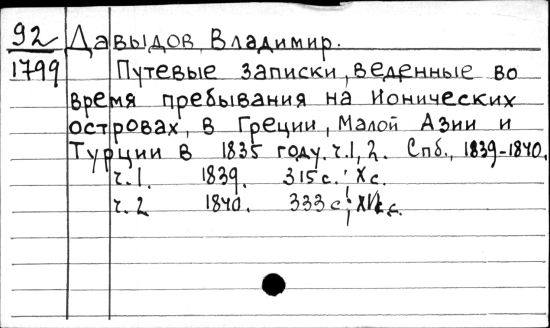 92 Давыдов, Владимир.
1799 Путевые записки, веденные во
время пребывания на Ионических
островах, в Греции, Малой Азии и
Турции в 1835 году. ч.1, 2. Спб., 1839-1840.
ч.1. 1839. 315 с.; X с.
ч.2 1840. 333 с.;